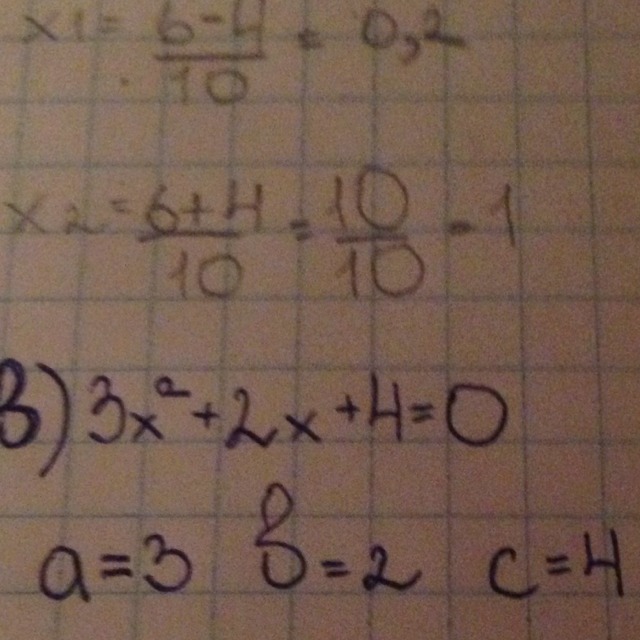 x1 = 6-4/10 = 0,2
x2 = 6+4/10 = 10/10 - 1
в) 3x²+2x+4=0
a=3 b=2 c=4